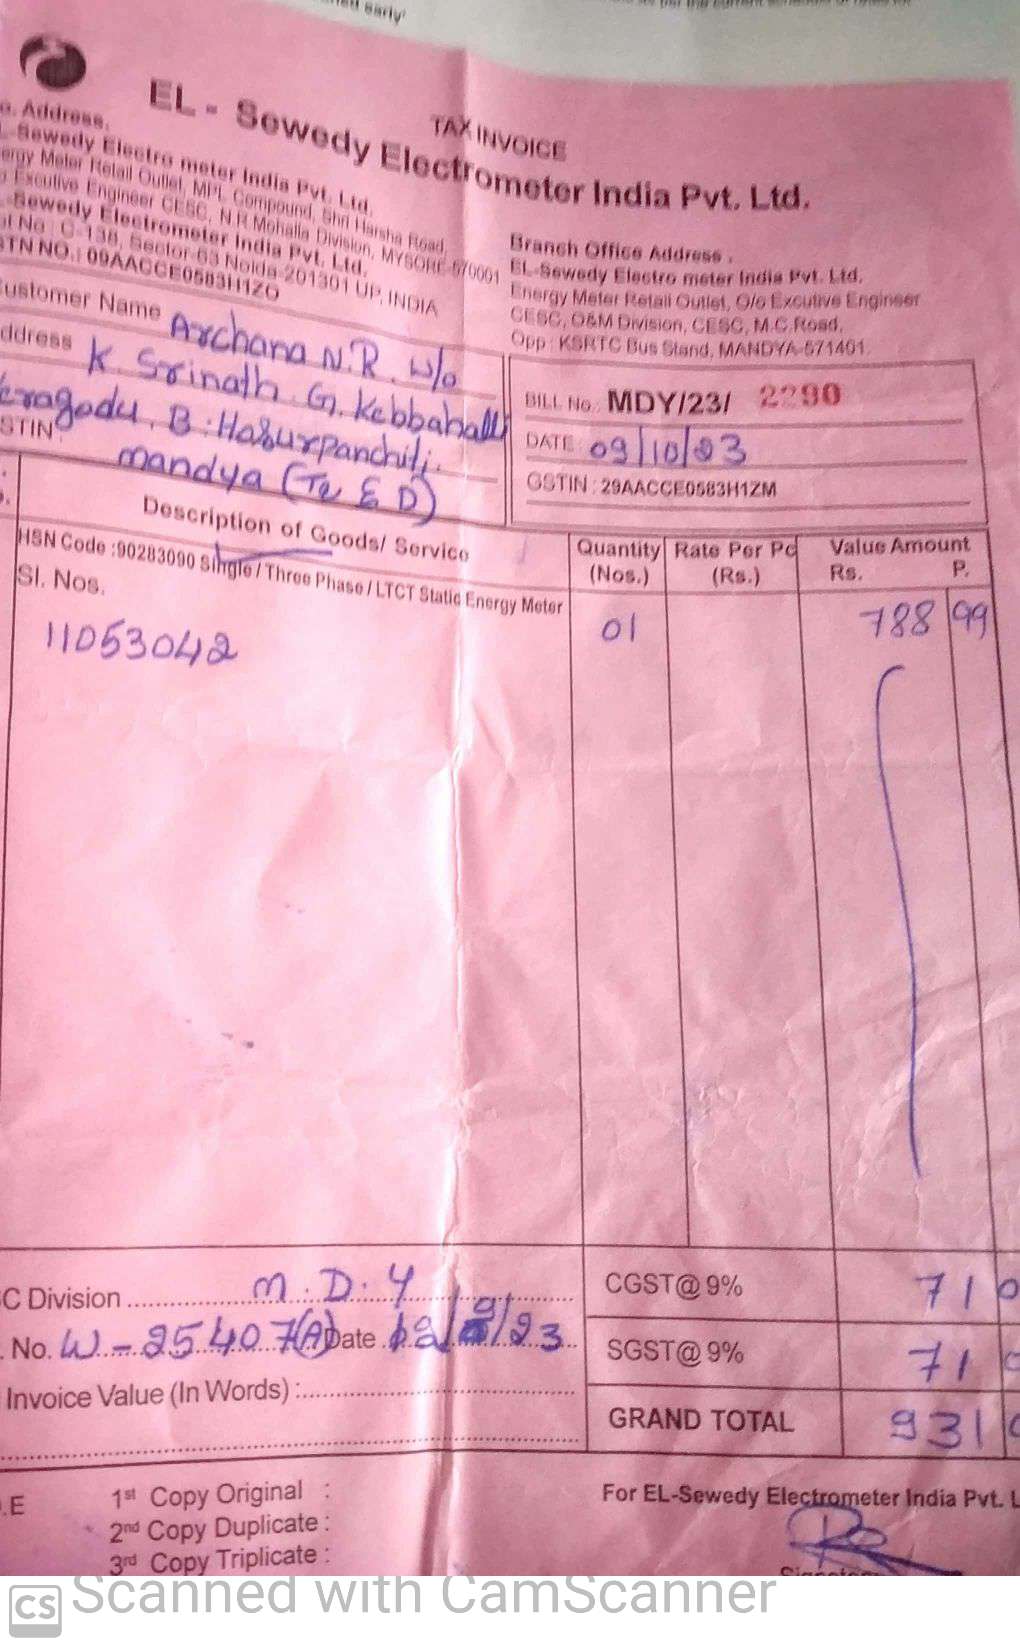 TAX INVOICE
EL - Sewedy Electrometer India Pvt. Ltd.
Address.
Sewedy Electro meter India Pvt. Ltd.
Meter Retail Outlet, MPL Compound, Shri Harsha Road,
Excutive Engineer CESC, N.R Mohalla Division, MYSORE-570001
Sewedy Electrometer India Pvt. Ltd.
No : C-138, Sector-63 Noida-201301 UP, INDIA
TN NO.: 09AACCE0583H1ZO
Branch Office Address .
EL-Sewedy Electro meter India Pvt. Ltd.
Energy Meter Retail Outlet, O/o Excutive Engineer
CESC, O&M Division, CESC, M.C.Road,
Opp : KSRTC Bus Stand, MANDYA-571401.
ustomer Name Archana N.R. w/o
ddress K Srinath G. Kebbahalli
eragodu, B:Hosurpanchiti.
STIN mandya (Tq & D)
BILL No. MDY/23/ 2290
DATE : 09/10/23
GSTIN : 29AACCE0583H1ZM
Description of Goods/ Service
Quantity (Nos.)
Rate Per Pc (Rs.)
Value Amount
Rs. P.
HSN Code :90283090 Single / Three Phase / LTCT Static Energy Meter
Sl. Nos.
11053042 01 788 99
C Division M.D.Y
No. W-25407(A) Date 12/9/23
Invoice Value (In Words) :
CGST@ 9% 71 0
SGST@ 9% 71
GRAND TOTAL 931
.E
1st Copy Original :
2nd Copy Duplicate :
3rd Copy Triplicate :
For EL-Sewedy Electrometer India Pvt. L
CS Scanned with CamScanner